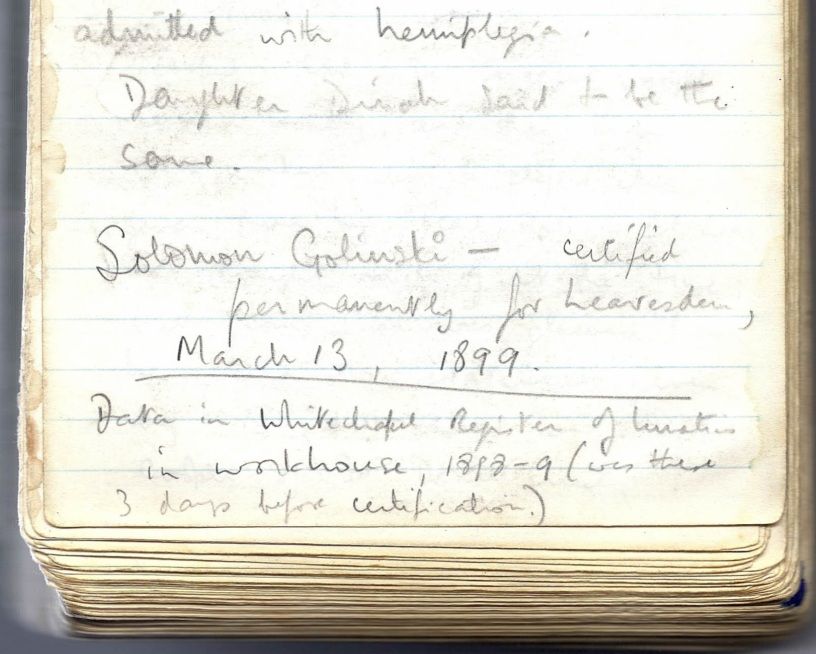 admitted with hemiplegia.
Daughter Dinah said to be the
same.
Solomon Golinski - certified
permanently for Leavesden,
March 13, 1899.
Data in Whitechapel Register of lunatics
in workhouse, 1898-9 (was there
3 days before certification.)